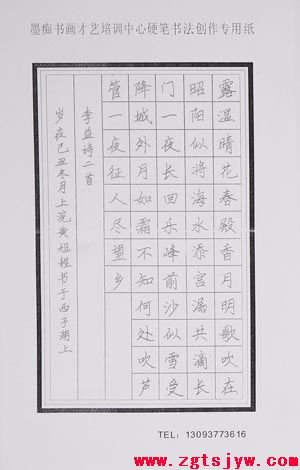 墨痴书画才艺培训中心硬笔书法创作专用纸
露湿晴花春殿香月明歌吹在
昭阳似将海水添宫漏共滴长
门一夜长回乐峰前沙似雪受
降城外月如霜不知何处吹芦
管一夜征人尽望乡
李益诗二首
岁在己丑冬月上浣黄姐程书于西子湖上
TEL: 13093773616
www.zgtsjyw.com